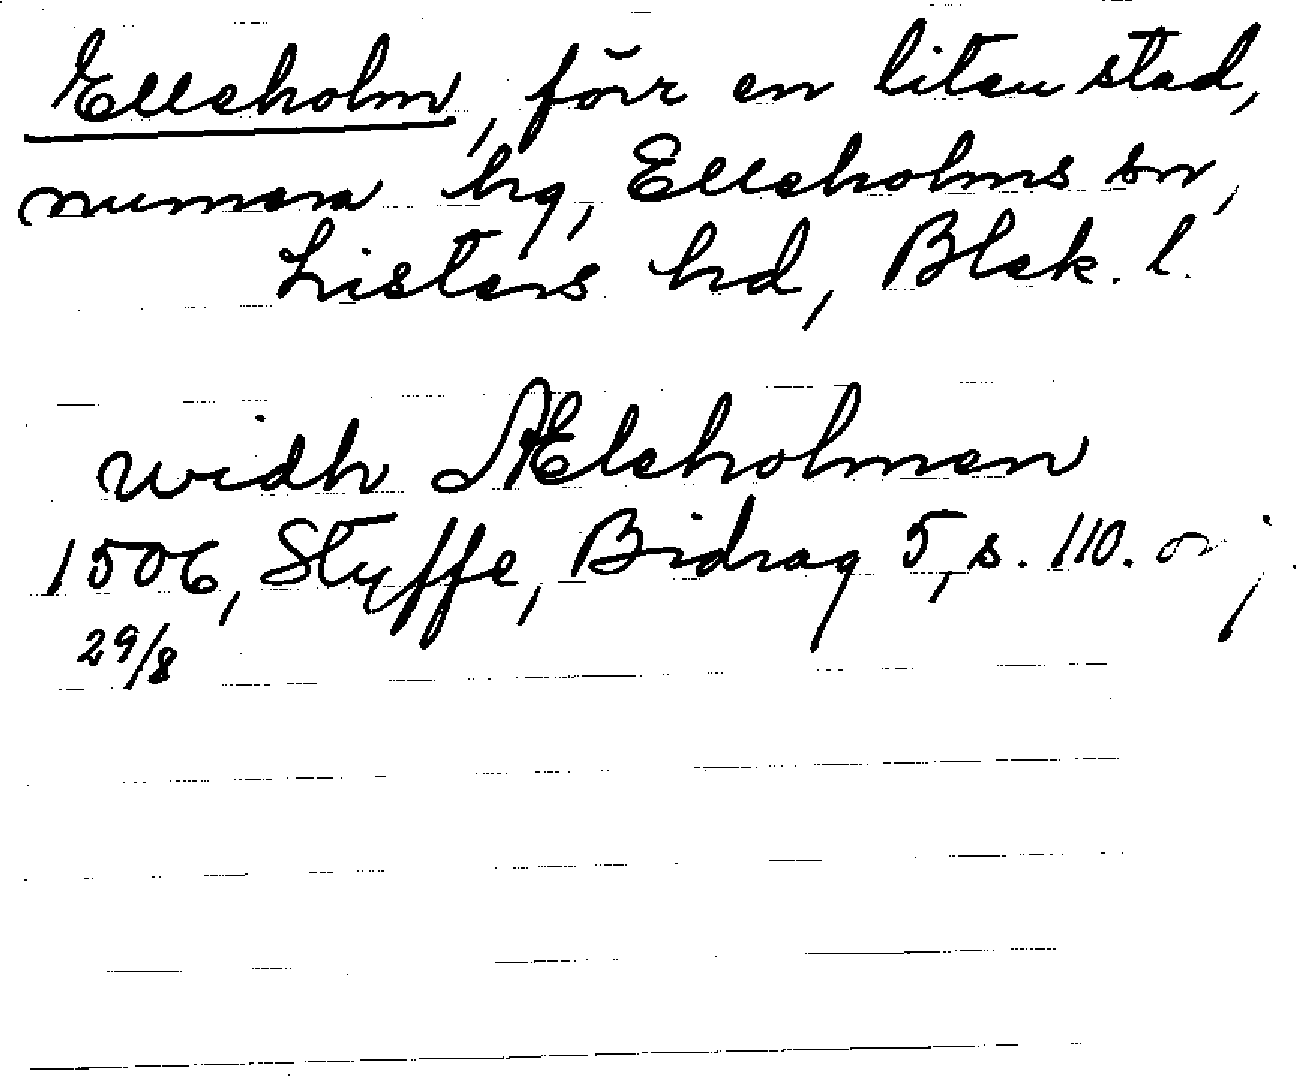 Elleholm, förr en liten stad,
numera hg, Elleholms sn,
Listers hd, Blek. l.
widh Æleholmen
1506, Styffe, Bidrag 5, s. 110. or;
29/8